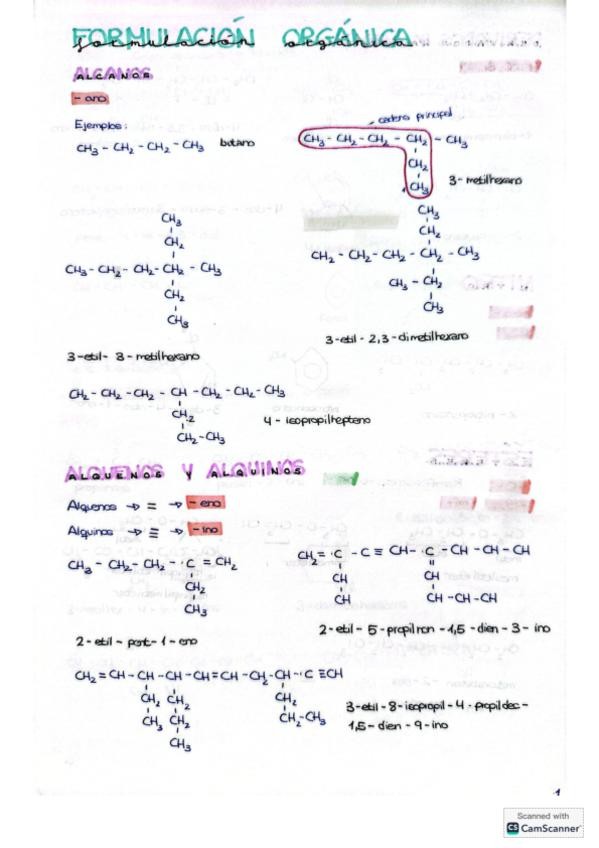 FORMULACIÓN ORGÁNICA
ALCANOS
- ano
Ejemplos:
CH3 - CH2 - CH2 - CH3 butano
cadena principal
CH3 - CH2 - CH2 - CH2 - CH3
CH2
CH3
3 - metilhexano
CH3
CH2
CH3 - CH2 - CH2 - CH2 - CH3
CH2
CH3
3 - etil - 3 - metilhexano
CH3
CH2
CH2 - CH2 - CH2 - CH2 - CH3
CH3 - CH2
CH3
3 - etil - 2,3 - dimetilhexano
CH2 - CH2 - CH2 - CH - CH2 - CH2 - CH3
CH2
CH2 - CH3
4 - isopropilhepteno
ALQUENOS Y ALQUINOS
Alquenos → = → - eno
Alquinos → ≡ → - ino
CH3 - CH2 - CH2 - C = CH2
CH2
CH3
2 - etil - pent - 1 - eno
CH2 = C - C ≡ CH - C - CH - CH - CH
CH CH
CH CH - CH - CH
2 - etil - 5 - propil non - 1,5 - dien - 3 - ino
CH2 = CH - CH - CH - CH = CH - CH2 - CH - C ≡ CH
CH2 CH2 CH2
CH3 CH2 CH2 - CH3
CH3
3 - etil - 8 - isopropil - 4 - propildec -
1,5 - dien - 9 - ino
1
Scanned with
CS CamScanner